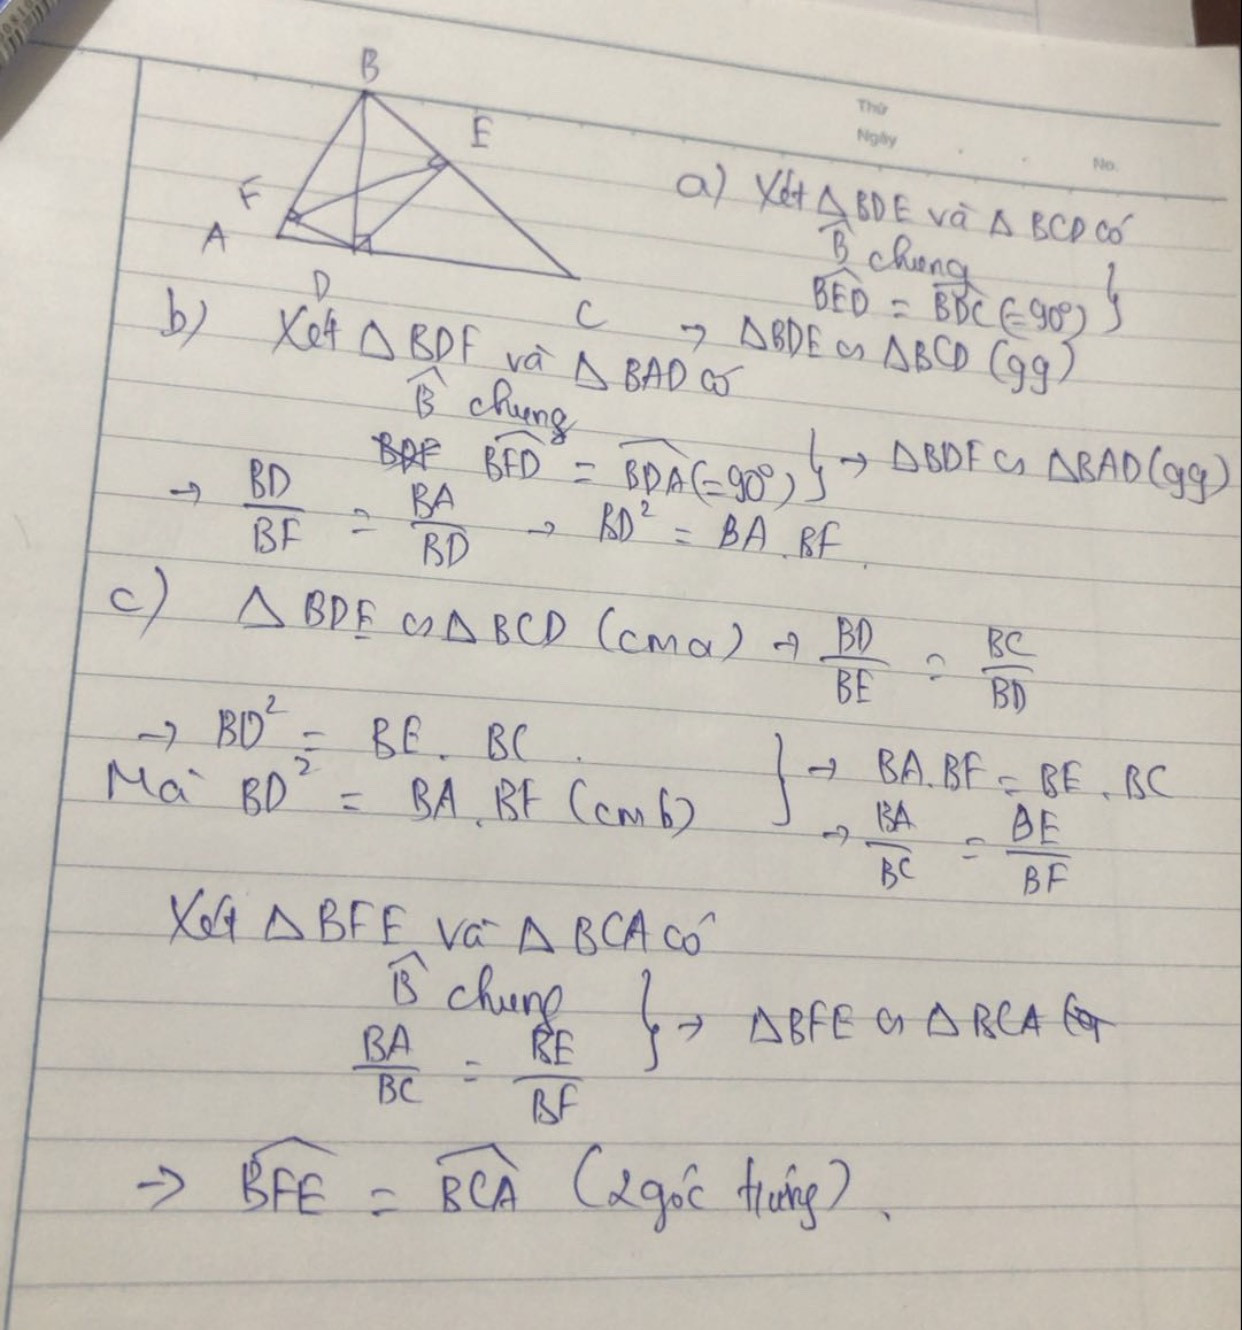 B
E
F
A
D
C
Thứ
Ngày
No.
a) Xét △BDE và △BCD có
B̂ chung
BED = BDC (=90°) }
→ △BDE ∽ △BCD (gg)
b) Xét △BDF và △BAD có
B̂ chung
BDF BFD = BDA (=90°) } → △BDF ∽ △BAD (gg)
→ BD/BF = BA/BD → BD² = BA.BF.
c) △BDE ∽ △BCD (cma) → BD/BE = BC/BD
→ BD² = BE. BC.
Mà BD² = BA.BF (cmb) } → BA.BF = BE.BC
→ BA/BC = BE/BF
Xét △BFE và △BCA có
B̂ chung
BA/BC = BE/BF } → △BFE ∽ △BCA
→ BFE = BCA (2 góc tứng).